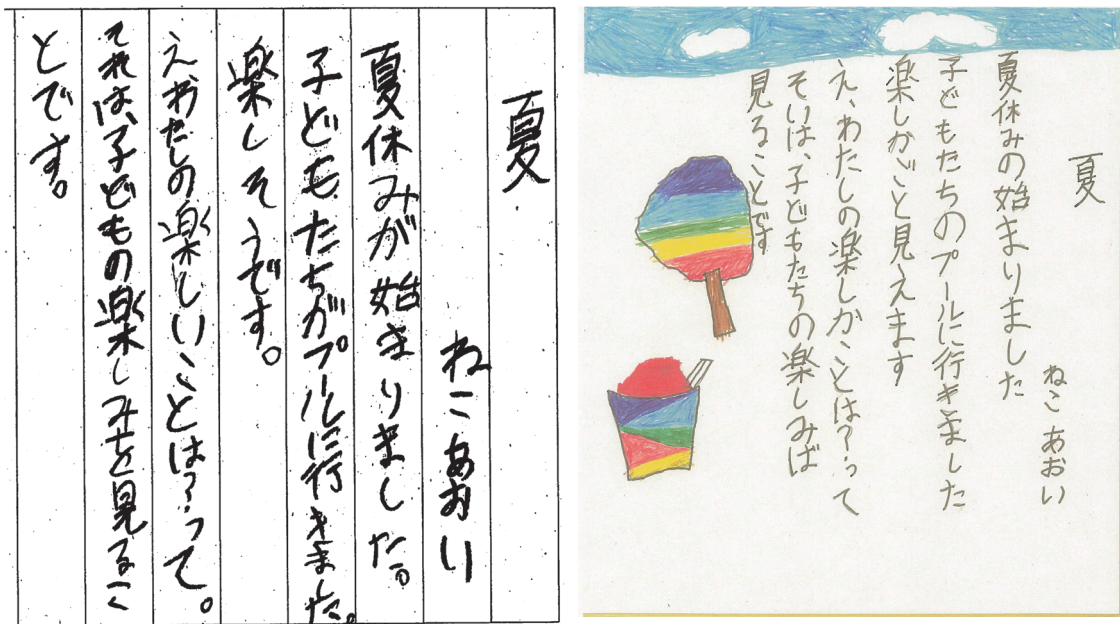 夏
ねこあおい
夏休みが始まりました。
子どもたちがプールに行きました。
楽しそうです。
えわたしの楽しいことは？って。
それは、子どもの楽しみを見るこ
とです。
夏
ねこあおい
夏休みの始まりました
子どもたちのプールに行きました
楽しかごと見えます
え、わたしの楽しかことは？って
そいは、子どもたちの楽しみば
見ることです